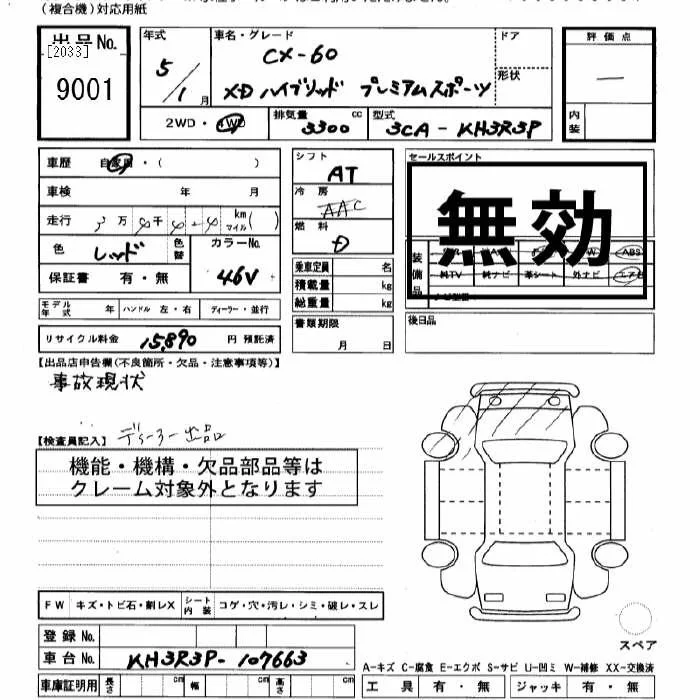 (複合機)対応用紙
出品No.
[2033]
9001
年式
5/1月
車名・グレード
CX-60
XD ハイブリッド プレミアムスポーツ
ドア
形状
評価点
内装
2WD・4WD
排気量 3300 cc
型式 3CA-KH3R3P
車歴 自家用・( )
車検 年 月
走行 万 千 km マイル( )
色 レッド
色替
カラーNo. 46V
保証書 有・無
モデル年式 ハンドル 左・右 ディーラー・並行
リサイクル料金 15,890 円 預託済
シフト AT
冷房 AAC
燃料 D
乗車定員 名
積載量 kg
総重量 kg
書類期限
月 日
セールスポイント
無効
装備品
ABS
純TV 純ナビ 革シート 外ナビ エアB
後日品
【出品店申告欄(不良箇所・欠品・注意事項等)】
事故現状
【検査員記入】 ディーラー出品
機能・機構・欠品部品等は
クレーム対象外となります
FW キズ・トビ石・割レX
シート内装 コゲ・穴・汚レ・シミ・破レ・スレ
登録No.
車台No. KH3R3P-107663
車庫証明用 長さ cm 幅 cm 高さ cm
スペア
A-キズ C-腐食 E-エクボ S-サビ U-凹ミ W-補修 XX-交換済
工具 有・無 ジャッキ 有・無